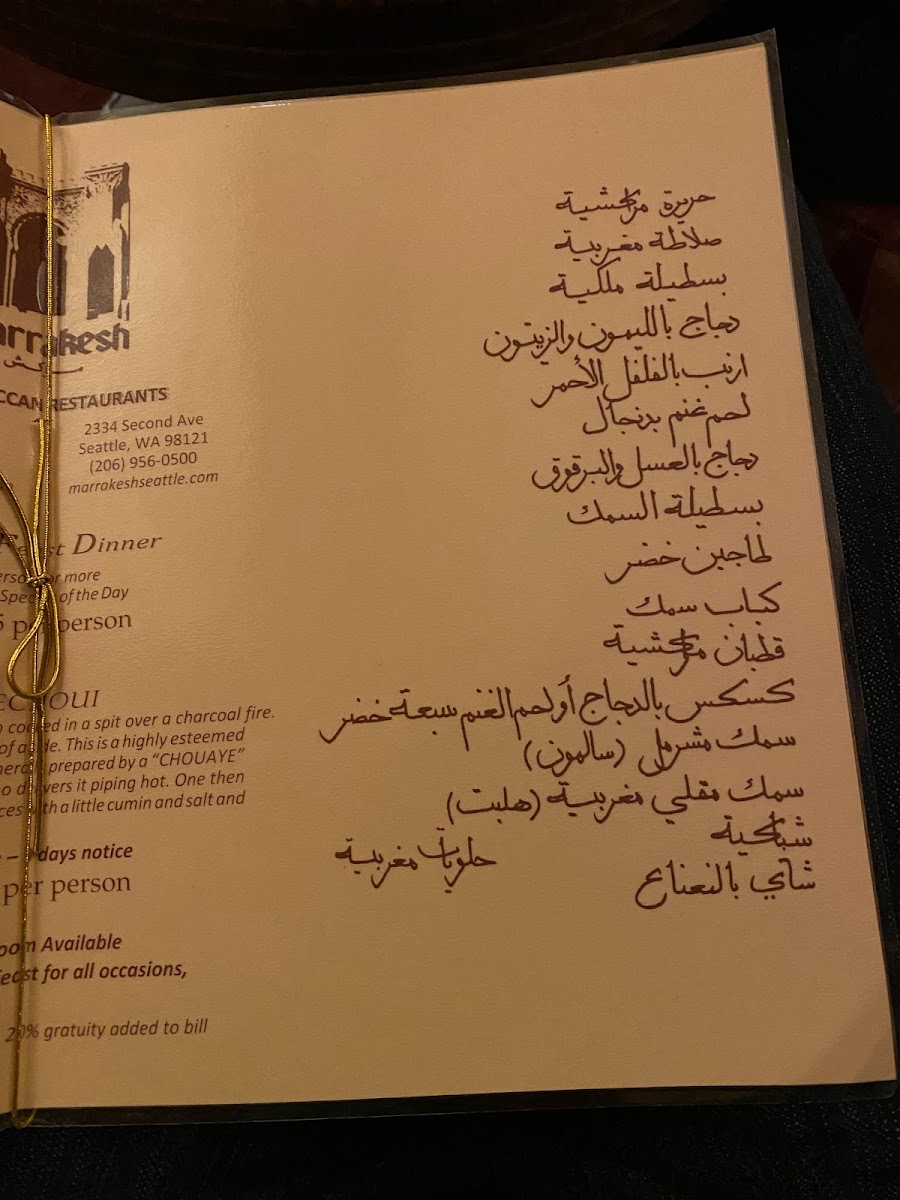 arrakesh
مراكش
CCAN RESTAURANTS
2334 Second Ave
Seattle, WA 98121
(206) 956-0500
marrakeshseattle.com
Feast Dinner
or more
Special of the Day
per person
ECHOUI
cooked in a spit over a charcoal fire.
This is a highly esteemed
prepared by a “CHOUAYE”
delivers it piping hot. One then
with a little cumin and salt and
days notice
per person
oom Available
feast for all occasions,
20% gratuity added to bill
حريرة مراكشية
صلاطة مغربية
بسطيلة ملكية
دجاج بالليمون والزيتون
ارنب بالفلفل الأحمر
لحم غنم بدنجال
دجاج بالعسل والبرقوق
بسطيلة السمك
طاجين خضر
كباب سمك
قطبان مراكشية
كسكس بالدجاج أو لحم الغنم سبعة خضر
سمك مشرمل (سالمون)
سمك مقلي مغربية (هلبت)
شباكية
حلويات مغربية
شاي بالنعناع